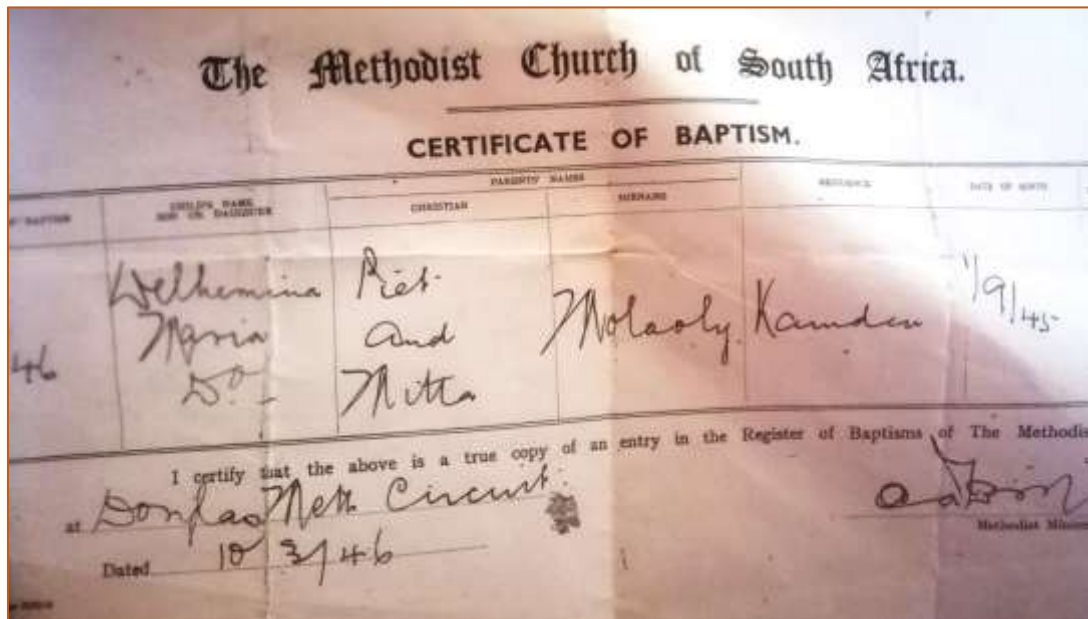 The Methodist Church of South Africa.
CERTIFICATE OF BAPTISM.
PARENTS' NAMES
BAPTISM
CHILD'S NAME
SON OR DAUGHTER
CHRISTIAN
SURNAME
RESIDENCE
DATE OF BIRTH
46
Welhemina
Maria
Do
Piet
and
Mitta
Molaoly
Kamden
1/9/45
I certify that the above is a true copy of an entry in the Register of Baptisms of The Methodis
at Douglas Meth Circuit.
Methodist Minis
Dated 10/3/46